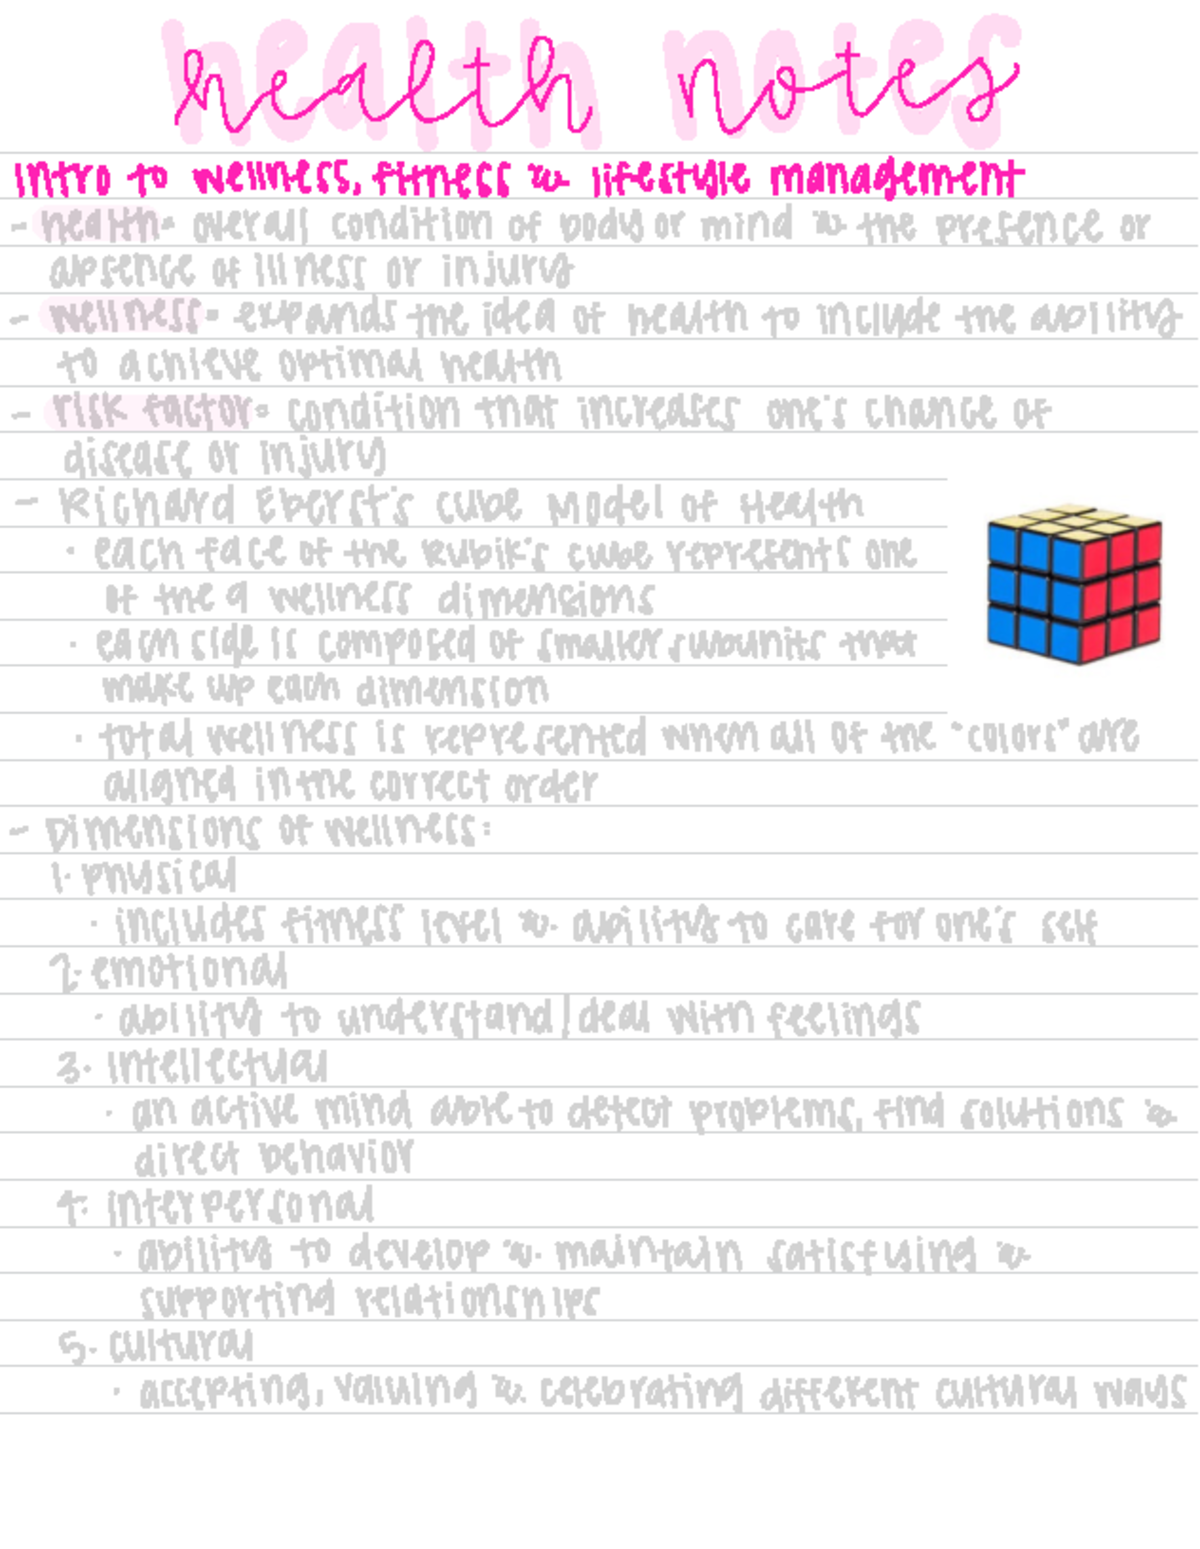 health notes
Intro to wellness, fitness & lifestyle management
- health= overall condition of body or mind & the presence or
absence of illness or injury
- wellness= expands the idea of health to include the ability
to achieve optimal health
- risk factor= condition that increases one's chance of
disease or injury
- Richard Eberst's cube Model of Health
· each face of the Rubik's cube represents one
of the 9 wellness dimensions
· each side is composed of smaller subunits that
make up each dimension
· total wellness is represented when all of the "colors" are
aligned in the correct order
- Dimensions of wellness:
1. physical
· includes fitness level & ability to care for one's self
2. emotional
· ability to understand/deal with feelings
3. intellectual
· an active mind able to detect problems, find solutions &
direct behavior
4. interpersonal
· ability to develop & maintain satisfying &
supporting relationships
5. cultural
· accepting, valuing & celebrating different cultural ways